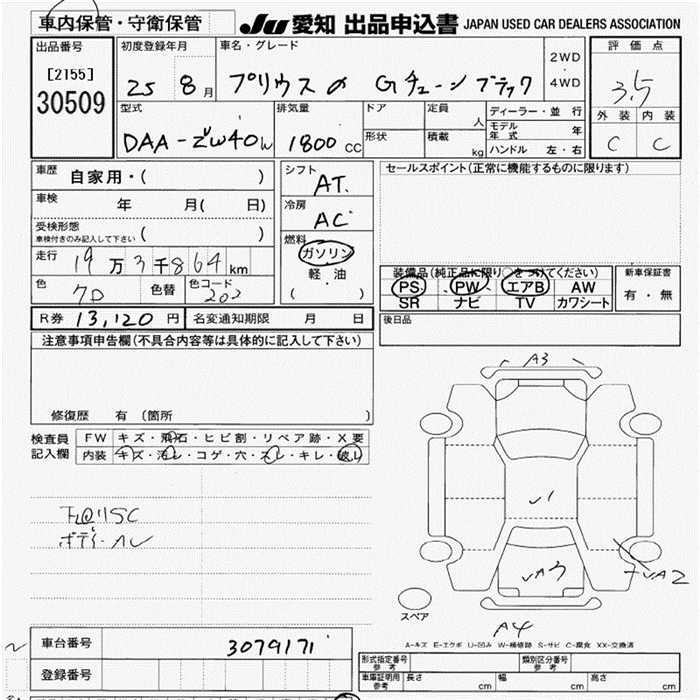 車内保管・守衛保管
JU 愛知 出品申込書 JAPAN USED CAR DEALERS ASSOCIATION
出品番号
[2155]
30509
初度登録年月
25 8月
車名・グレード
プリウスα Gチューン ブラック
2WD
・
4WD
評価点
3.5
外装 内装
C C
型式
DAA-ZVW40W
排気量
1800 CC
ドア
形状
定員
人
積載
kg
ディーラー・並行
モデル年式 年
ハンドル 左・右
車歴
自家用・( )
車検
年 月( 日)
受検形態
車検付きのみ記入して下さい ( )
走行
19万3千864km
色
色替
色コード
202
シフト
AT
冷房
AC
燃料
ガソリン
軽油
( )
セールスポイント(正常に機能するものに限ります)
装備品(純正品に限り○をつけてください)
PS PW エアB AW
SR ナビ TV カワシート
新車保証書
有・無
後日品
R券 13,120円
名変通知期限 月 日
注意事項申告欄(不具合内容等は具体的に記入して下さい)
修復歴 有 (箇所 )
検査員
記入欄
FW キズ・飛石・ヒビ割・リペア跡・X要
内装 キズ・汚レ・コゲ・穴・スレ・キレ・破レ
A3
A2
A4
スペア
A-キズ E-エクボ U-凹み W-補修跡 S-サビ C-腐食 XX-交換済
車台番号
3079171
登録番号
形式指定番号
参考
類別区分番号
参考
車庫証明用
参考
長さ cm
幅 cm
高さ cm